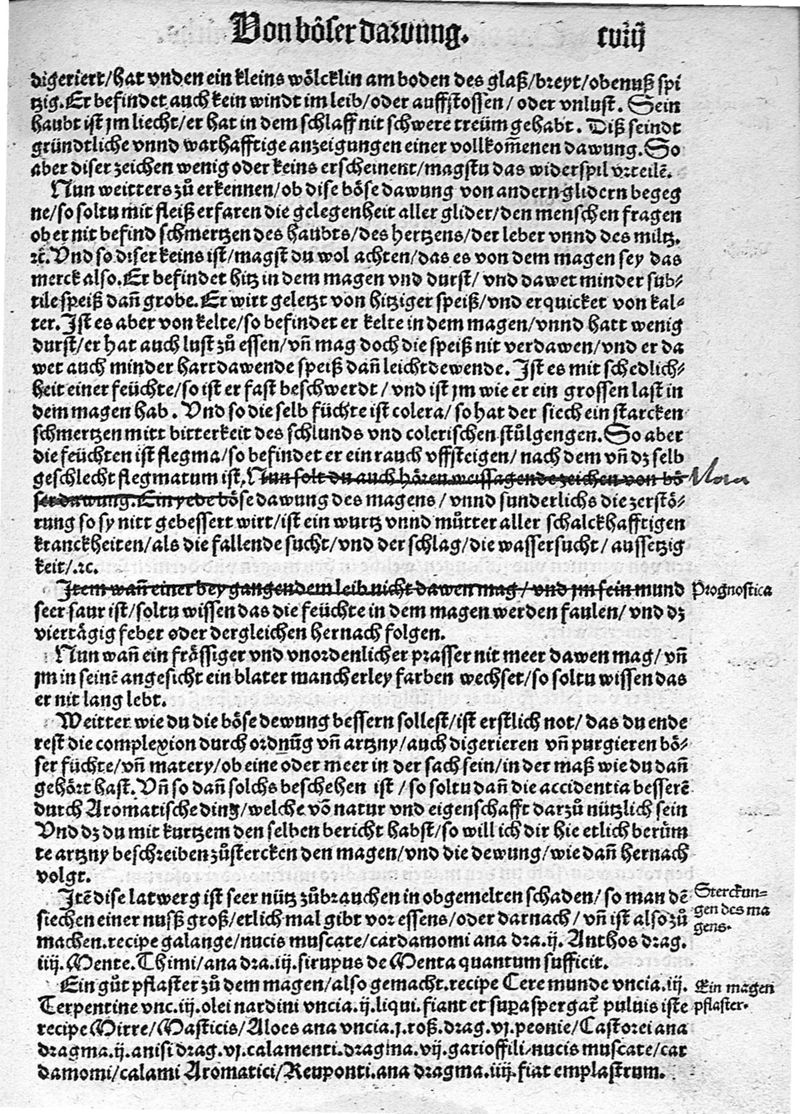 Von böser dawung. cviij
digeriert/hat vnden ein kleins wölcklin am boden des glaß/breyt/obenuß spi
tzig. Er befindet auch kein windt im leib/oder auffstossen/ oder vnlust. Sein
haubt ist jm liecht/er hat in dem schlaff nit schwere treüm gehabt. Diß seindt
gründtliche vnnd warhafftige anzeigungen einer vollkom̄enen dawung. So
aber diser zeichen wenig oder keins erscheinent/magstu das widerspil vrteilē.
Nun weitters zů erkennen/ob dise böse dawung von andern glidern begeg
ne/so soltu mit fleiß erfaren die gelegenheit aller glider/den menschen fragen
ob er nit befind schmertzen des haubts/des hertzens/der leber vnnd des miltz.
ꝛc. Vnd so diser keins ist/magst du wol achten/das es von dem magen sey das
merck also. Er befindet hitz in dem magen vnd durst/ vnd dawet minder sub-
tile speiß dan̄ grobe. Er wirt geletzt von hitziger speiß/vnd erquicket von kal-
ter. Ist es aber von kelte/so befindet er kelte in dem magen/vnnd hatt wenig
durst/er hat auch lust zů essen/vn̄ mag doch die speiß nit verdawen/vnd er da
wet auch minder hart dawende speiß dan̄ leicht dewende. Ist es mit schedlich-
heit einer feüchte/so ist er fast beschwerdt/vnd ist jm wie er ein grossen last in
dem magen hab. Vnd so die selb füchte ist colera/so hat der siech ein starcken
schmertzen mitt bitterkeit des schlunds vnd colerischen stůlgengen. So aber
die feüchten ist flegma/so befindet er ein rauch vffsteigen/ nach dem vn̄ dz selb
geschlecht flegmatum ist, Nun solt du auch hören weissagende zeichen von bö
ser dawung. Ein yede böse dawung des magens/ vnnd sunderlichs die zerstö-
rung so sy nitt gebessert wirt/ist ein wurtz vnnd můtter aller schalckhafftigen
kranckheiten/als die fallende sucht/vnd der schlag/die wassersucht/ aussetzig
keit/.ꝛc.
Item wan̄ einer bey gangendem leib nicht dawen mag/vnd jm sein mund
Prognostica
seer saur ist/soltu wissen das die feüchte in dem magen werden faulen/ vnd dz
viertägig feber oder dergleichen hernach folgen.
Nun wan̄ ein frässiger vnd vnordenlicher prasser nit meer dawen mag/ vn̄
jm in seinē angesicht ein blater mancherley farben wechset/so soltu wissen das
er nit lang lebt.
Weitter wie du die böse dewung bessern sollest/ist erstlich not/das du ende
rest die complexion durch ordnūg vn̄ artzny/auch digerieren vn̄ purgieren bö-
ser füchte/vn̄ matery/ob eine oder meer in der sach sein/in der maß wie du dan̄
gehört hast. Vn̄ so dan̄ solchs beschehen ist/so soltu dan̄ die accidentia besserē
durch Aromatische ding/welche vō natur vnd eigenschafft darzů nützlich sein
Vnd dz du mit kurtzem den selben bericht habst/so will ich dir hie etlich berüm
te artzny beschreiben zůstercken den magen/vnd die dewung/wie dan̄ hernach
volgt.
Itē dise latwerg ist seer nütz zůbrauchen in obgemelten schaden/ so man dē
Sterckun-
gen des ma
gens.
siechen einer nusß groß/etlich mal gibt vor essens/oder darnach/ vn̄ ist also zů
machen. recipe galange/nucis muscate/cardamomi ana dra.ij. Anthos drag.
iiij. Mente. Thimi/ana dra.iij. sirupus de Menta quantum sufficit.
Ein gůt pflaster zů dem magen/also gemacht. recipe Cere munde vncia.iij.
Ein magen
pflaster.
Terpentine vnc.iij. olei nardini vncia.ij. liqui. fiant et suꝑaspergat̄ puluis iste
recipe Mirre/Masticis/Aloes ana vncia.j. roß. drag. vj. peonie/Castorei ana
dragma.ij. anisi drag. vj. calamenti. dragma. vij. garioffili-nucis muscate/car
damomi/calami Aromatici/Reuponti. ana dragma.iiij. fiat emplastrum.